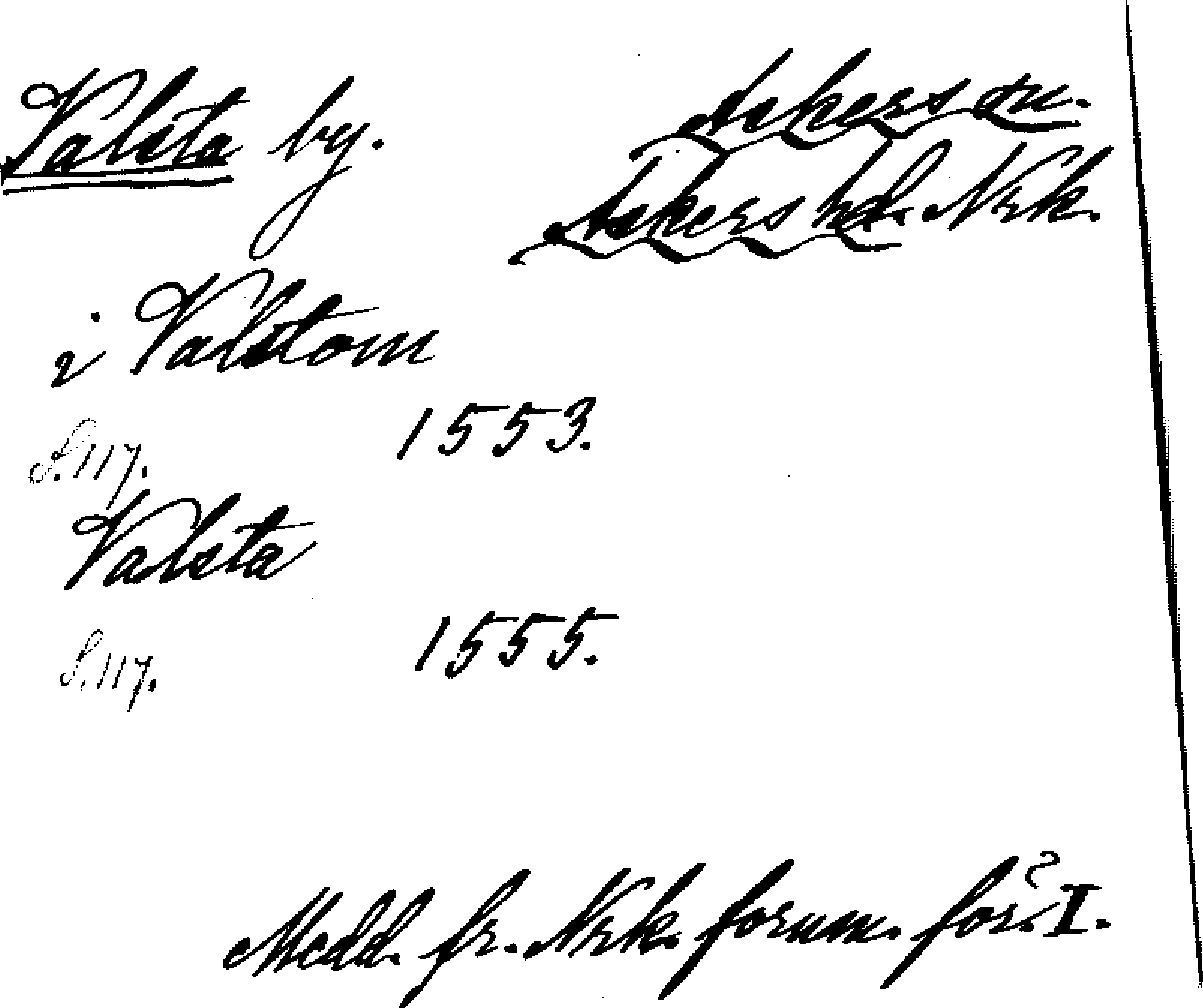 Valsta by.
Askers sn.
Askers hd. Nrk.
i Valstom
S. 117. 1553.
Valsta
S. 117. 1555.
Medd. fr. Nrk. fornm. för. I.